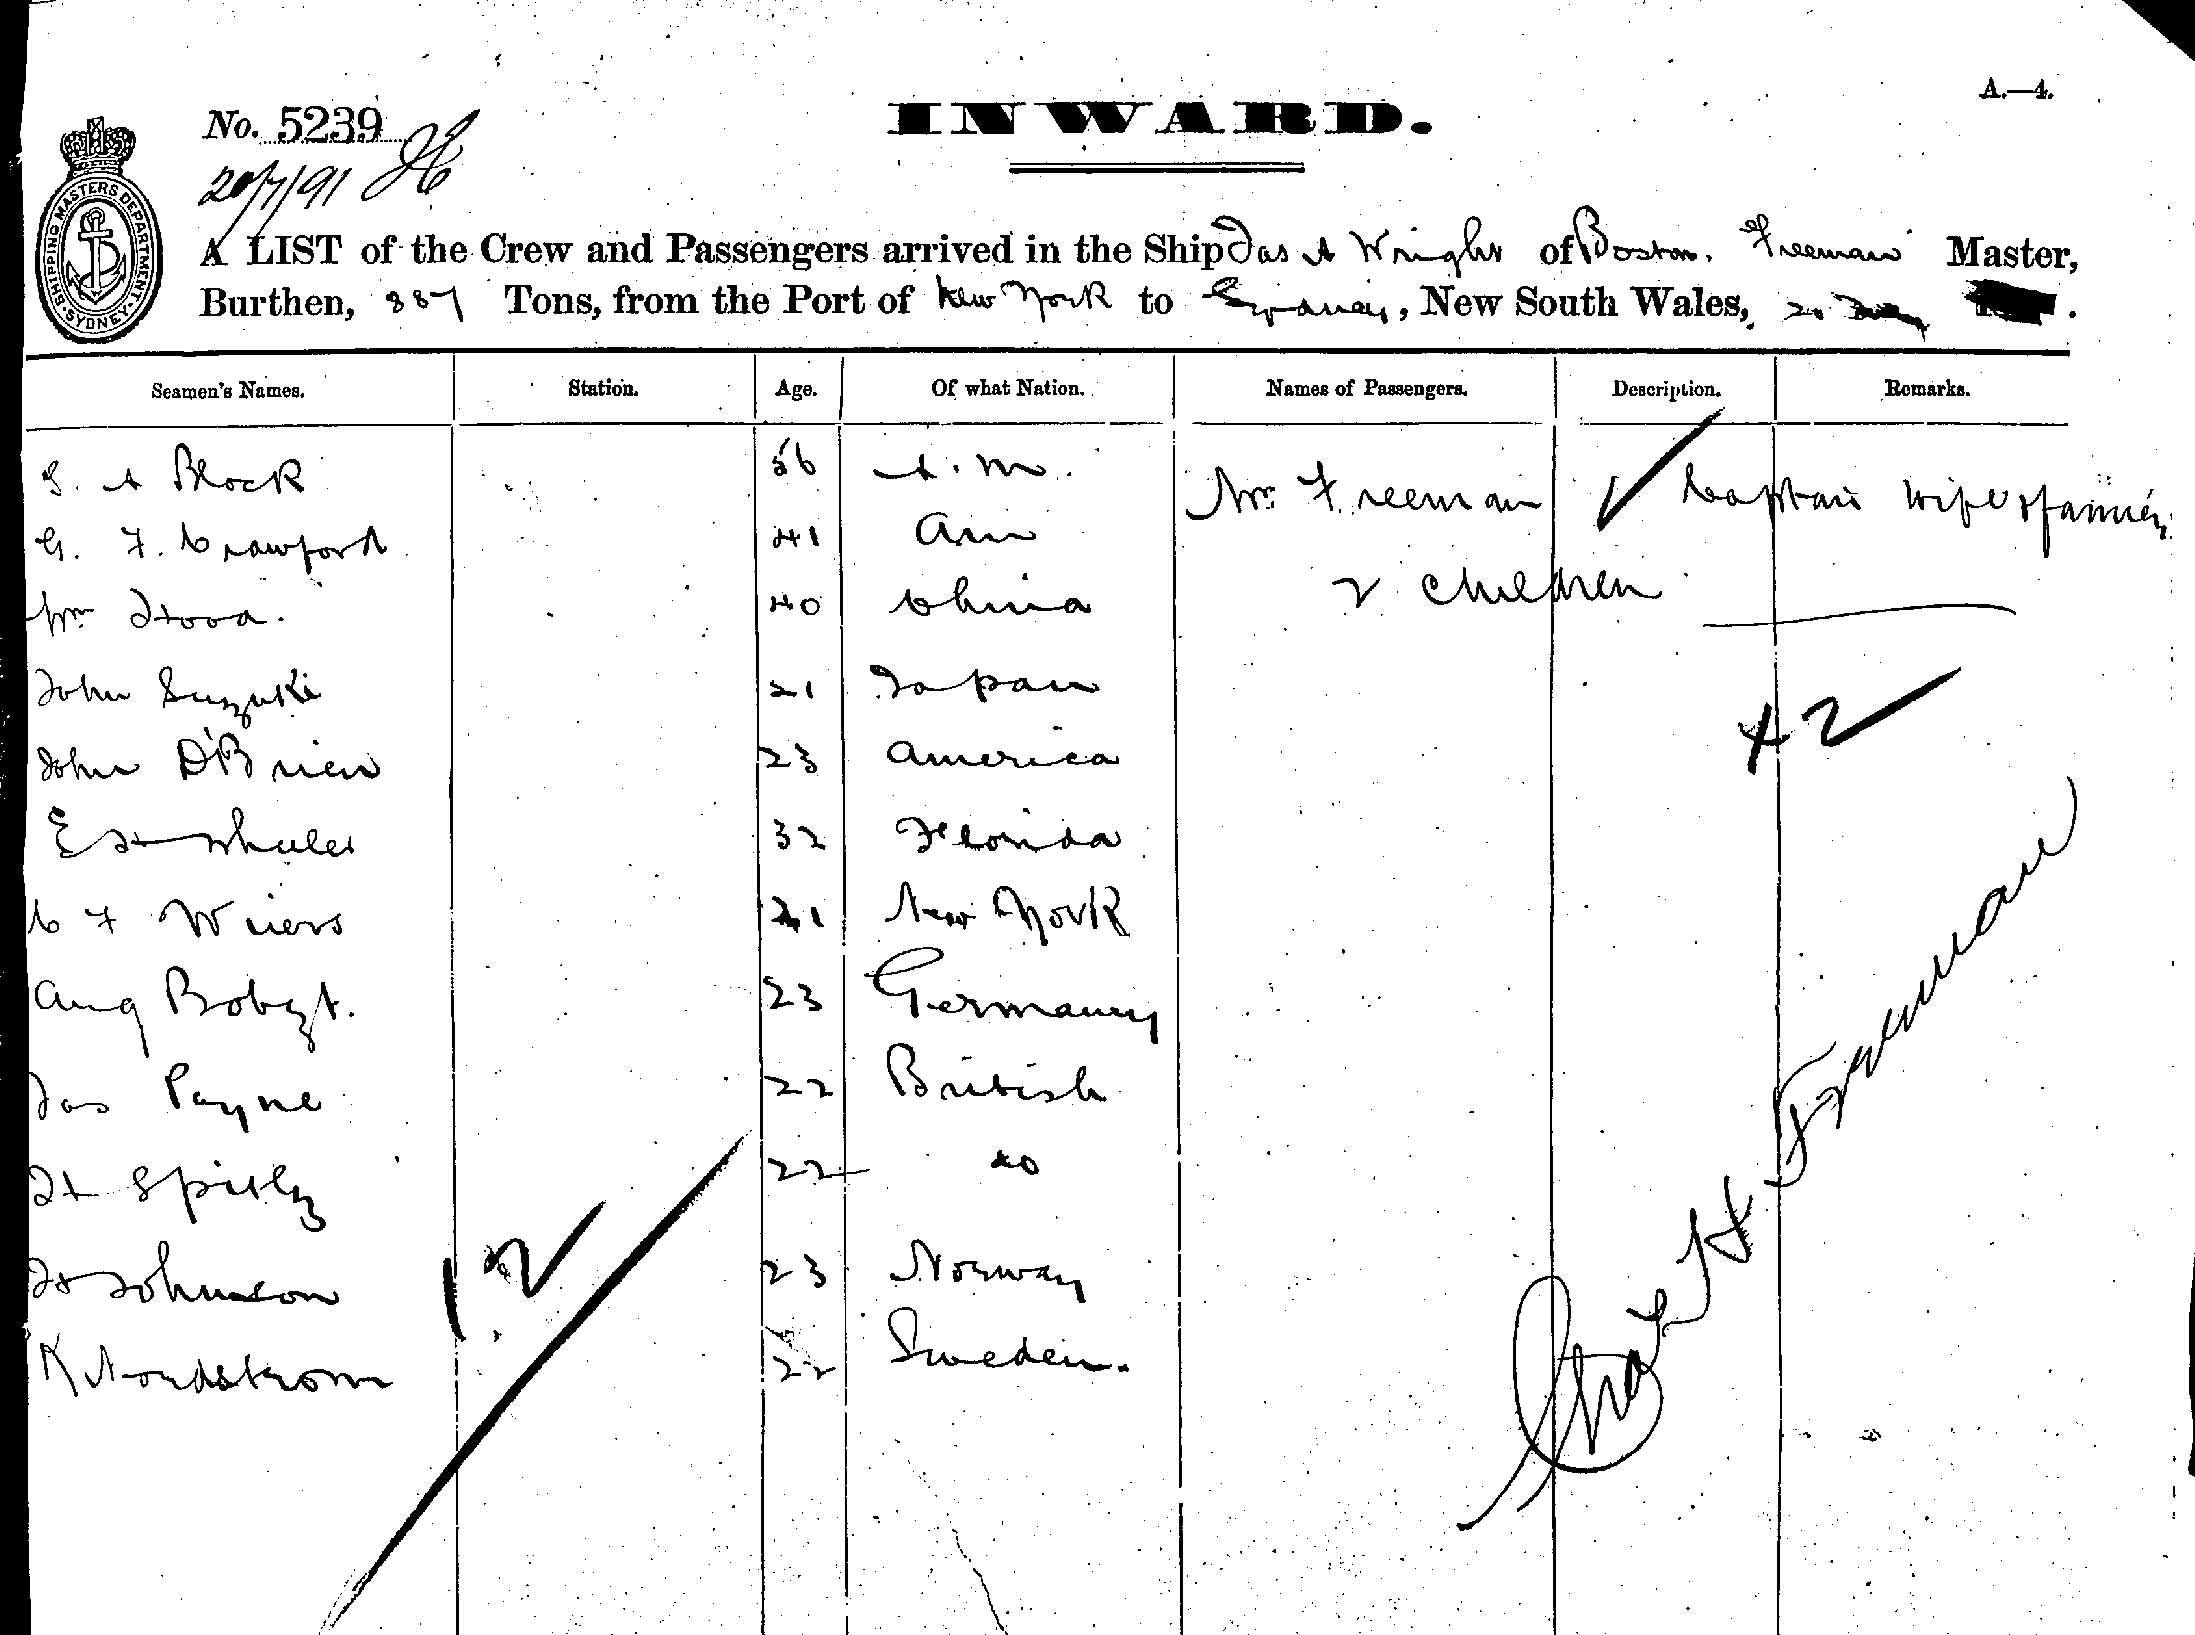 A.—4.
INWARD.
No. 5239
20/7/91
SHIPPING MASTERS DEPARTMENT. SYDNEY.
A LIST of the Crew and Passengers arrived in the Ship Jas A Wright of Boston. Freeman Master,
Burthen, 887 Tons, from the Port of New York to Sydney, New South Wales, 20 July
Seamen's Names. Station. Age. Of what Nation. Names of Passengers. Description. Remarks.
S. A Block 56 A. m. Mrs Freeman Captain wife & family
G. F. Crawford 41 Am 2 children
Wm 40 China
John Suzuki 21 Japan
+ 2
John O'Brien 23 America
E H Wheeler 32 Florida
C F Wiers 21 New York
Aug 23 Germany
Jas Payne 22 British
H 22 do
H Johnson 23 Norway
12
K Nordstrom 22 Sweden.
Chas H Freeman